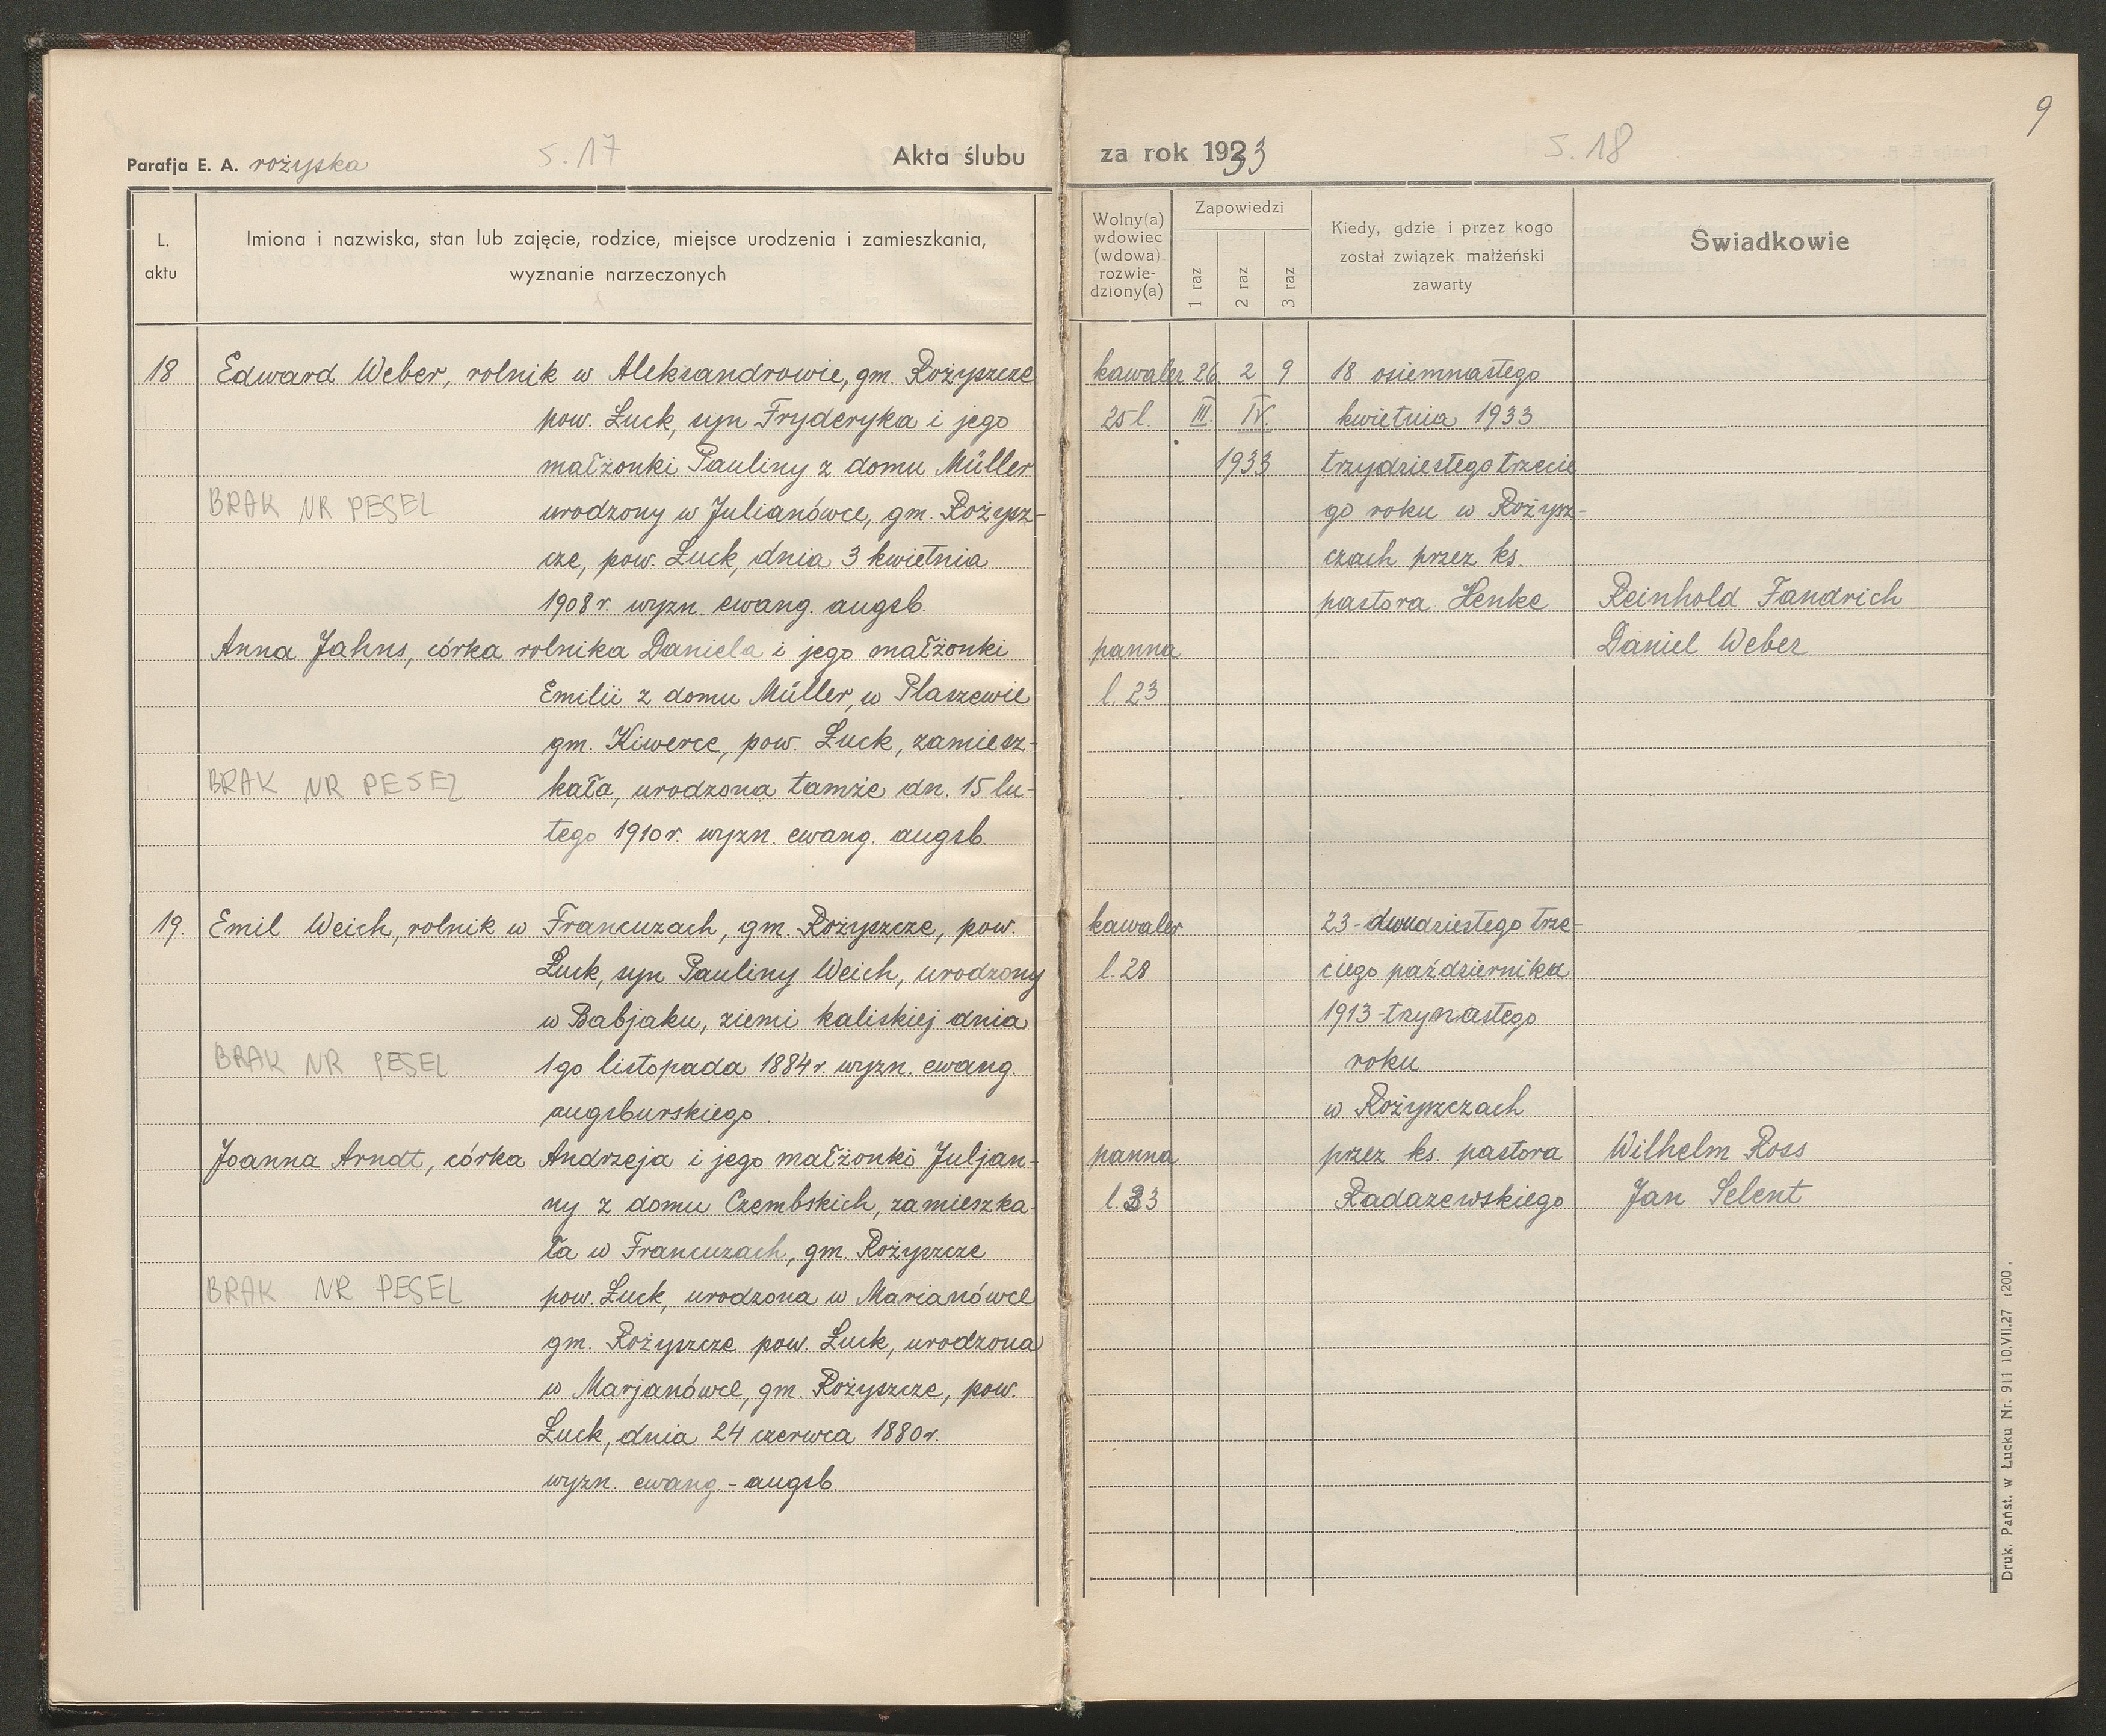 Parafja E. A. rożyska
s. 17
Akta ślubu
L. aktu
Imiona i nazwiska, stan lub zajęcie, rodzice, miejsce urodzenia i zamieszkania,
wyznanie narzeczonych
18
Edward Weber, rolnik w Aleksandrowie, gm. Rożyszcze
pow. Łuck, syn Fryderyka i jego
małżonki Pauliny z domu Müller
BRAK NR PESEL
urodzony w Julianówce, gm. Rożysz-
cze, pow. Łuck, dnia 3 kwietnia
1908 r. wyzn. ewang. augsb.
Anna Jahns, córka rolnika Daniela i jego małżonki
Emilii z domu Müller, w Płaszewie
gm. Kiwerce, pow. Łuck, zamiesz-
BRAK NR PESEL
kała, urodzona tamże dn. 15 lu-
tego 1910 r. wyzn. ewang. augsb.
19.
Emil Weich, rolnik w Francuzach, gm. Rożyszcze, pow.
Łuck, syn Pauliny Weich, urodzony
w Babjaku, ziemi kaliskiej dnia
BRAK NR PESEL
1go listopada 1884 r. wyzn. ewang.
augsburskiego.
Joanna Arndt, córka Andrzeja i jego małżonki Juljan-
ny z domu Czembskich, zamieszka-
ła w Francuzach, gm. Rożyszcze
BRAK NR PESEL
pow. Łuck, urodzona w Marianówce
gm. Rożyszcze pow. Łuck, urodzona
w Marjanówce, gm. Rożyszcze, pow.
Łuck, dnia 24 czerwca 1880 r.
wyzn. ewang.-augsb.
9
za rok 1933
s. 18
Wolny(a)
wdowiec
(wdowa)
rozwie-
dziony(a)
Zapowiedzi
1 raz
2 raz
3 raz
Kiedy, gdzie i przez kogo
został związek małżeński
zawarty
Świadkowie
kawaler 26 2 9
25 l. III. IV.
1933
18 osiemnastego
kwietnia 1933
trzydziestego trzecie
go roku w Rożysz-
czach przez ks
pastora Henke
Reinhold Fandrich
Daniel Weber
panna
l. 23
kawaler
l. 28
23-dwudziestego trze-
ciego października
1913-trzynastego
roku
w Rożyszczach
przez ks. pastora
Radaszewskiego
panna
l. 33
Wilhelm Ross
Jan Selent
Druk. Państ. w Łucku Nr. 911 10.VII.27 (200.